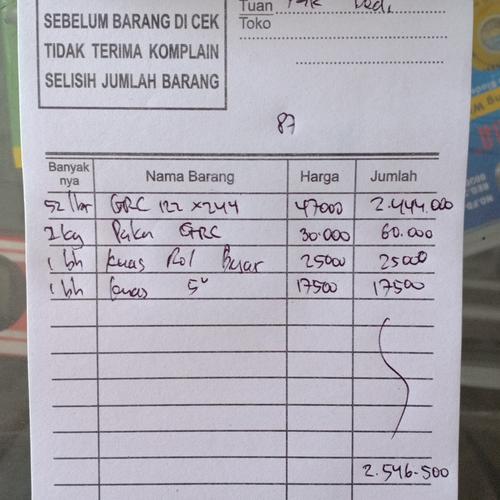 SEBELUM BARANG DI CEK
TIDAK TERIMA KOMPLAIN
SELISIH JUMLAH BARANG
Tuan Pak Dedi
Toko
87
Banyak nya Nama Barang Harga Jumlah
52 lbr GRC 122 x 244 47000 2.444.000
2 kg Paku GRC 30.000 60.000
1 bh Kuas Rol Besar 25000 25000
1 bh Kuas 5" 17500 17500
2.546.500